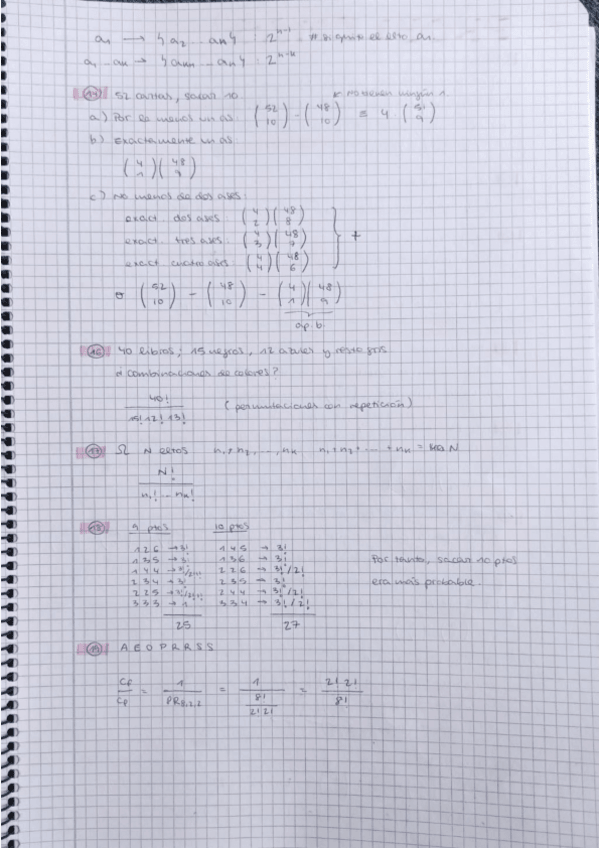 a₁ → {a₂ ... aₙ} : 2ⁿ⁻¹
a₁ ... aₖ → {aₖ₊₁ ... aₙ} : 2ⁿ⁻ᵏ
14 52 cartas, sacar 10
a) Por lo menos un as: (52 10) - (48 10) = 4 (51 9)
b) Exactamente un as:
(4 1)(48 9)
c) No menos de dos ases:
exact. dos ases: (4 2)(48 8)
exact. tres ases: (4 3)(48 7) } +
exact. cuatro ases: (4 4)(48 6)
o (52 10) - (48 10) - (4 1)(48 9)
ap. b
16 40 libros; 15 negros, 12 azules y resto gris
¿combinaciones de colores?
40! / 15! 12! 13! (permutaciones con repetición)
17 Ω N eltos n₁, n₂, ..., nₖ n₁ + n₂ + ... + nₖ = N
N! / n₁! ... nₖ!
18 9 ptos 10 ptos
126 → 3! 145 → 3!
135 → 3! 136 → 3!
144 → 3!/2! 226 → 3!/2!
234 → 3! 235 → 3!
225 → 3!/2! 244 → 3!/2!
333 → 1 334 → 3!/2!
25 27
Por tanto, sacar 10 ptos
era más probable.
19 A E O P R R S S
Cf/Cp = 1/PR8,2,2 = 1/(8!/2!2!) = 2! 2!/8!